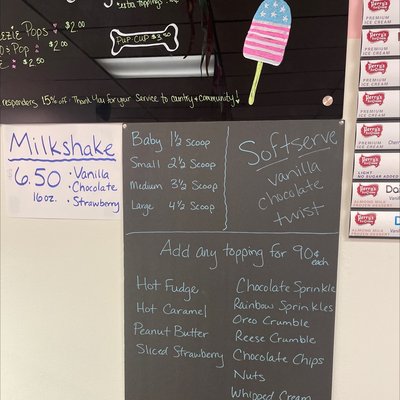 extra toppings
EZIE Pops $2.00
's Pop $2.00
$2.50
PUP-CUP $3.50
responders, 15% off. Thank You for your Service to cuntry + community!
Milkshake
6.50
16 oz.
• Vanilla
• Chocolate
• Strawberry
Baby 1½ Scoop
Small 2½ Scoop
Medium 3½ Scoop
Large 4½ Scoop
Softserve
vanilla
chocolate
twist
Add any topping for 90¢ each
Hot Fudge
Hot Caramel
Peanut Butter
Sliced Strawberry
Chocolate Sprinkle
Rainbow Sprinkles
Oreo Crumble
Reese Crumble
Chocolate Chips
Nuts
Whipped Cream
Perry's
PREMIUM
ICE CREAM
Perry's
PREMIUM
ICE CREAM
Perry's
PREMIUM
ICE CREAM
Perry's
PREMIUM
ICE CREAM
Perry's
PREMIUM
ICE CREAM
Perry's
LIGHT
NO SUGAR ADDED
Perry's
ALMOND MILK
FROZEN DESSERT
Perry's
ALMOND MILK
FROZEN DESSERT